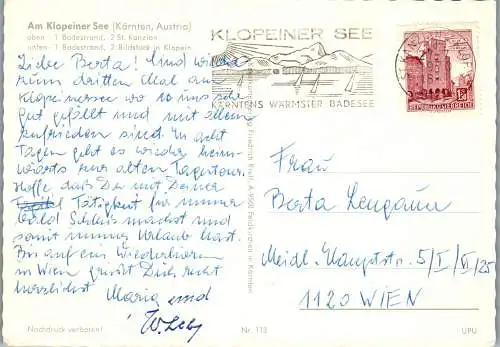 Am Klopeiner See (Kärnten, Austria)
oben 1 Badestrand, 2 St. Kanzian
unten 1 Badestrand, 2 Bildstock in Klopein
KLOPEINER SEE
KÄRNTENS WÄRMSTER BADESEE
REPUBLIK ÖSTERREICH
Liebe Berta! Sind wieder
zum dritten Mal am
Klopeinersee wo es uns sehr
gut gefällt und mit allem
zufrieden sind. In acht
Tagen geht es wieder heim-
wärts zur alten Tagestour.
Hoffe daß Du mit Deiner
Tätigkeit für immer
bald Schluss machst und
somit immer Urlaub hast.
Bis auf ein Wiederhören
in Wien grüßt Dich recht
herzlichst Maria und
Frau
Berta
Meidl. Hauptstr. 5/I/VI/25
1120 WIEN
Nachdruck verboten!
Nr. 113
UPU